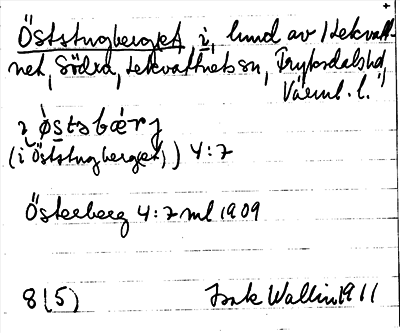 Öststugberget, i, lund av Lekvatt-
net, Södra, Lekvattnets sn, Fryksdals hd,
Värml. l.
ı ø̀stsbærj
(i Öststugberget,) 4:7
Österberg 4:7 ml 1909
8 (5) Isak Wallin 1911